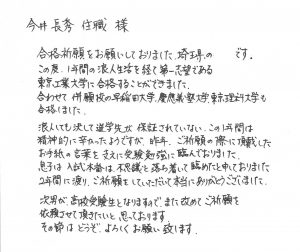 今井長秀 住職 様
合格祈願をお願いしておりました、埼玉県の です。
この度、1年間の浪人生活を経て第一志望である
東京工業大学に合格することができました。
合わせて併願校の早稲田大学、慶應義塾大学、東京理科大学も
合格しました。
浪人しても決して進学先が保証されていない。この1年間は
精神的に辛かったようですが、昨年、ご祈願の際に頂戴した
お手紙の言葉を支えに受験勉強に臨んでおりました。
息子は入試本番は、不思議と落ち着いて臨めたと申しております
2年間に渡り、ご祈願をしていただいて本当にありがとうございました。
次男が、高校受験生となりますので、また改めてご祈願を
依頼させて頂きたいと思っております
その節はどうぞ、よろしくお願い致します。